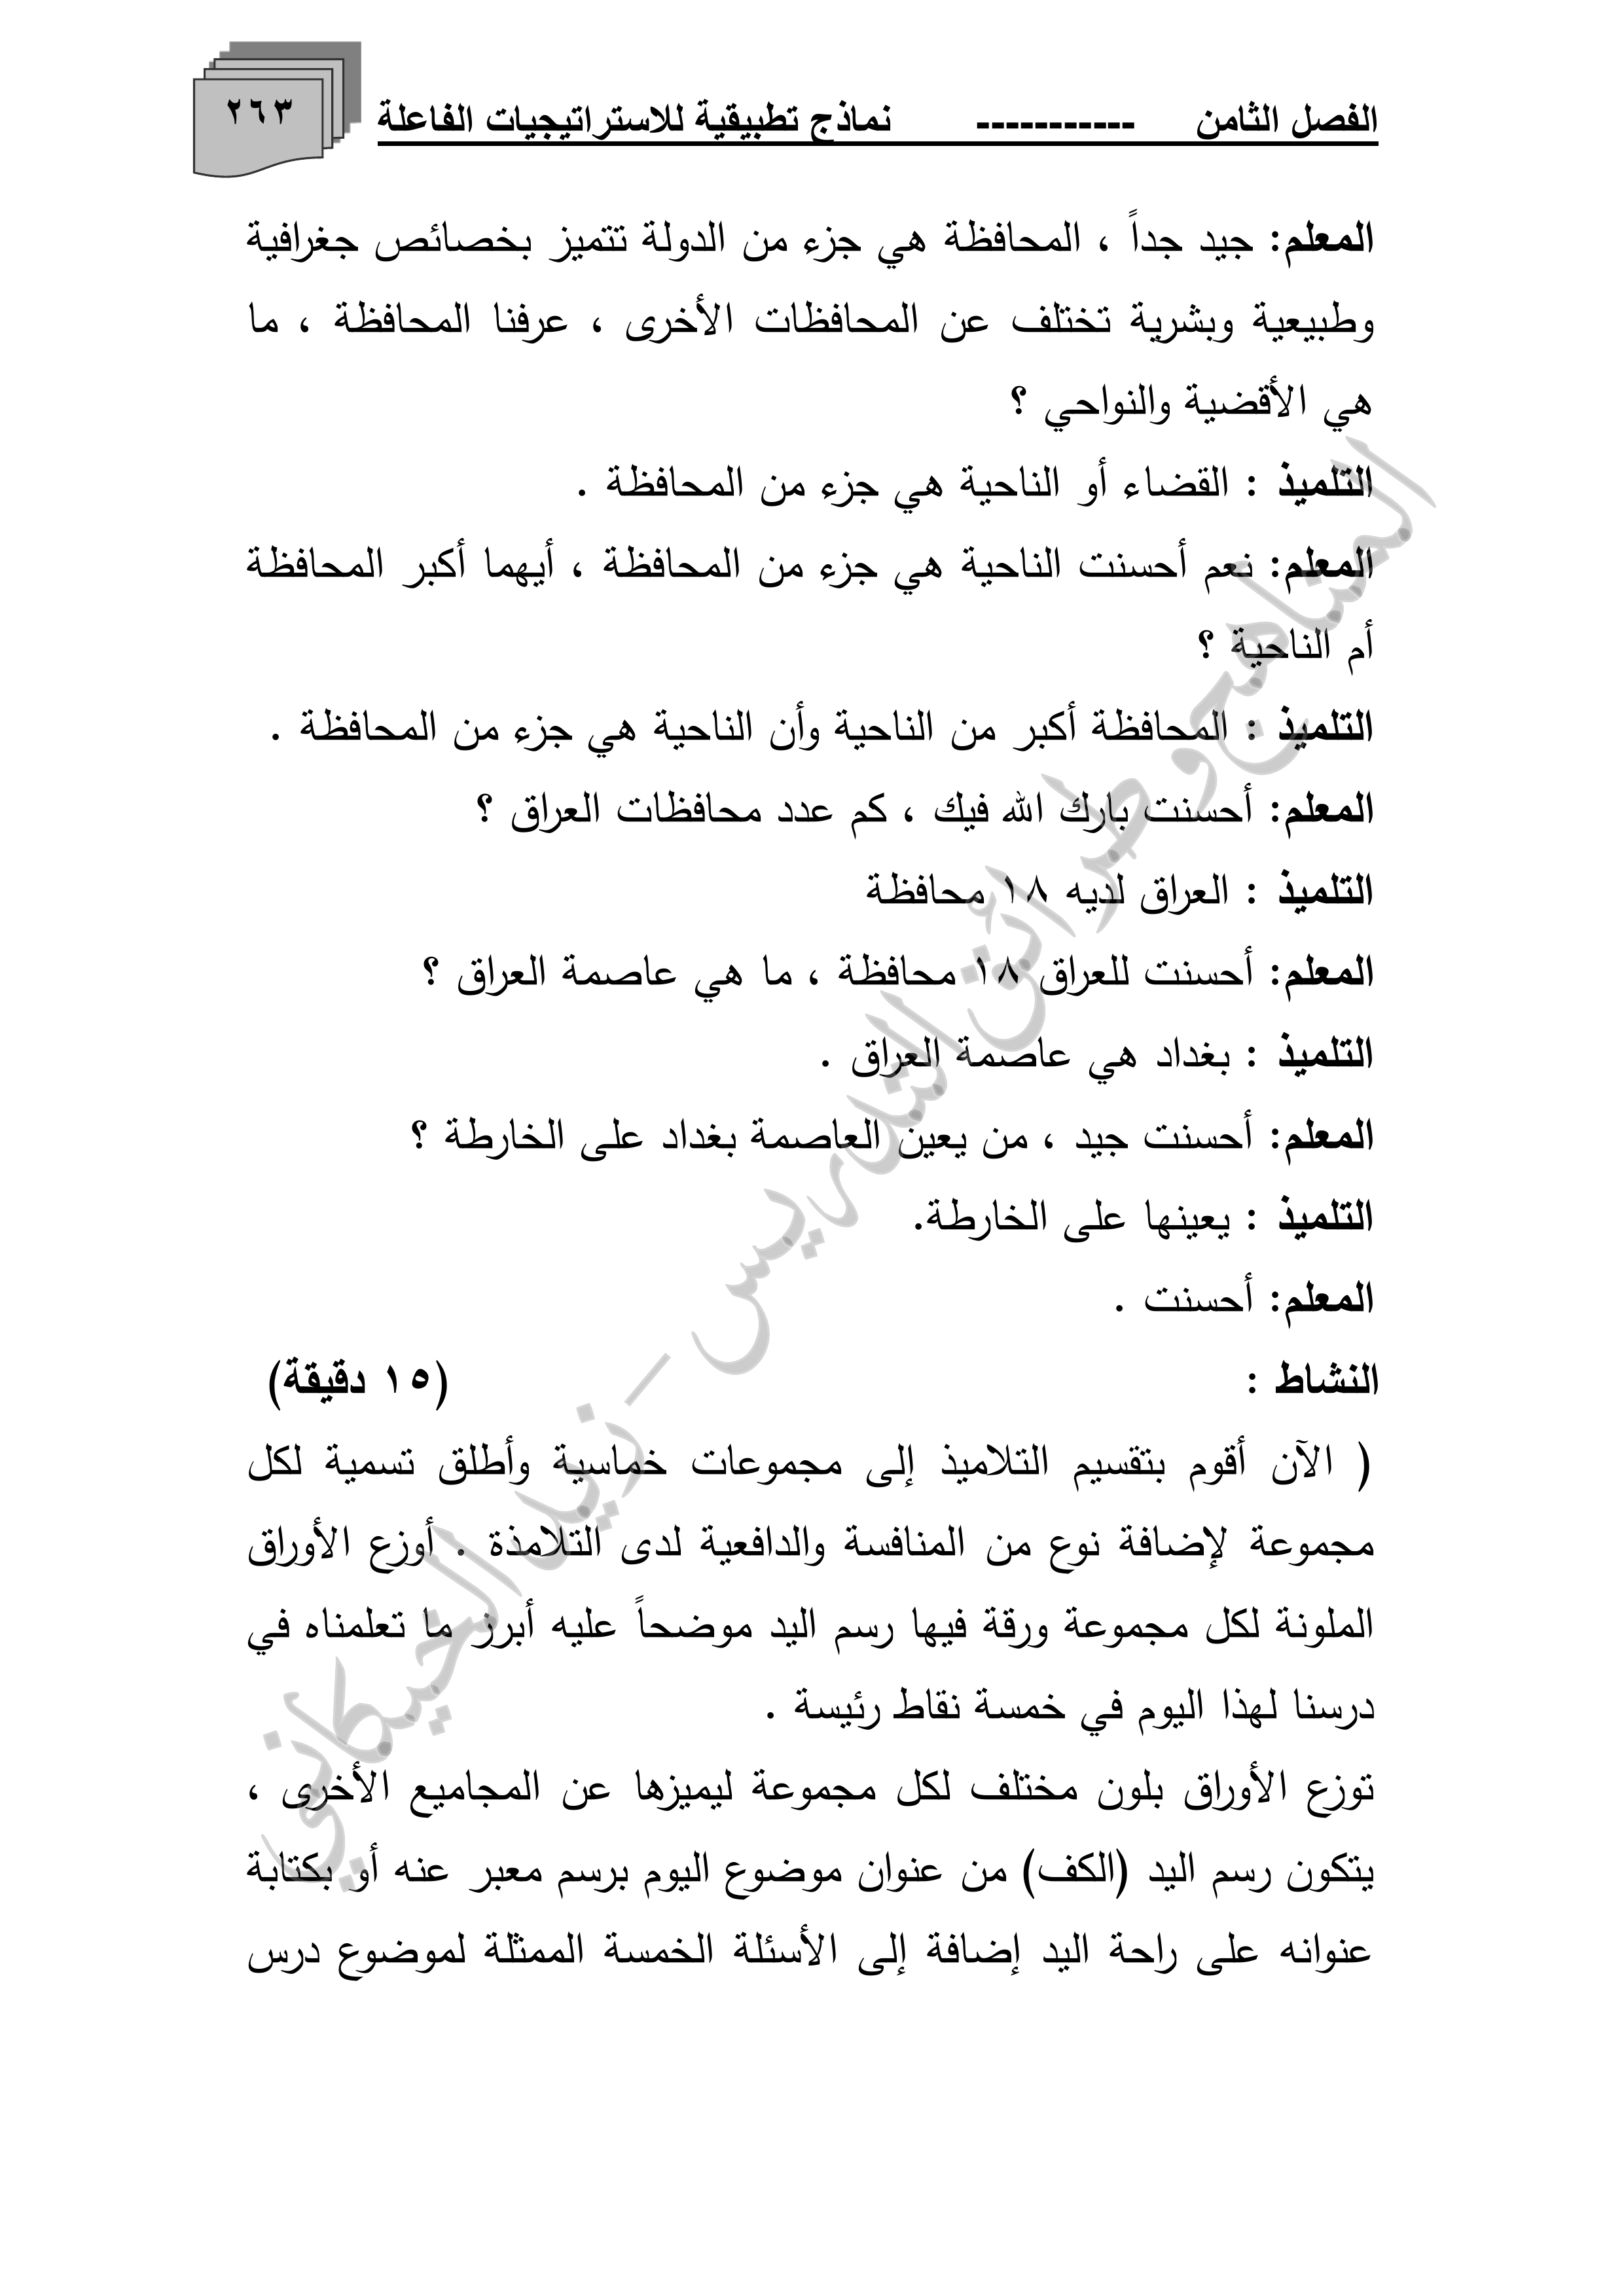 الفصل الثامن ----------- نماذج تطبيقية للاستراتيجيات الفاعلة
٢٦٣
المعلم: جيد جداً ، المحافظة هي جزء من الدولة تتميز بخصائص جغرافية
وطبيعية وبشرية تختلف عن المحافظات الأخرى ، عرفنا المحافظة ، ما
هي الأقضية والنواحي ؟
التلميذ : القضاء أو الناحية هي جزء من المحافظة .
المعلم: نعم أحسنت الناحية هي جزء من المحافظة ، أيهما أكبر المحافظة
أم الناحية ؟
التلميذ : المحافظة أكبر من الناحية وأن الناحية هي جزء من المحافظة .
المعلم: أحسنت بارك الله فيك ، كم عدد محافظات العراق ؟
التلميذ : العراق لديه ١٨ محافظة
المعلم: أحسنت للعراق ١٨ محافظة ، ما هي عاصمة العراق ؟
التلميذ : بغداد هي عاصمة العراق .
المعلم: أحسنت جيد ، من يعين العاصمة بغداد على الخارطة ؟
التلميذ : يعينها على الخارطة.
المعلم: أحسنت .
النشاط : (١٥ دقيقة)
( الآن أقوم بتقسيم التلاميذ إلى مجموعات خماسية وأطلق تسمية لكل
مجموعة لإضافة نوع من المنافسة والدافعية لدى التلامذة . أوزع الأوراق
الملونة لكل مجموعة ورقة فيها رسم اليد موضحاً عليه أبرز ما تعلمناه في
درسنا لهذا اليوم في خمسة نقاط رئيسة .
توزع الأوراق بلون مختلف لكل مجموعة ليميزها عن المجاميع الأخرى ،
يتكون رسم اليد (الكف) من عنوان موضوع اليوم برسم معبر عنه أو بكتابة
عنوانه على راحة اليد إضافة إلى الأسئلة الخمسة الممثلة لموضوع درس
المناهج وطرائق التدريس - زيد الخيكاني